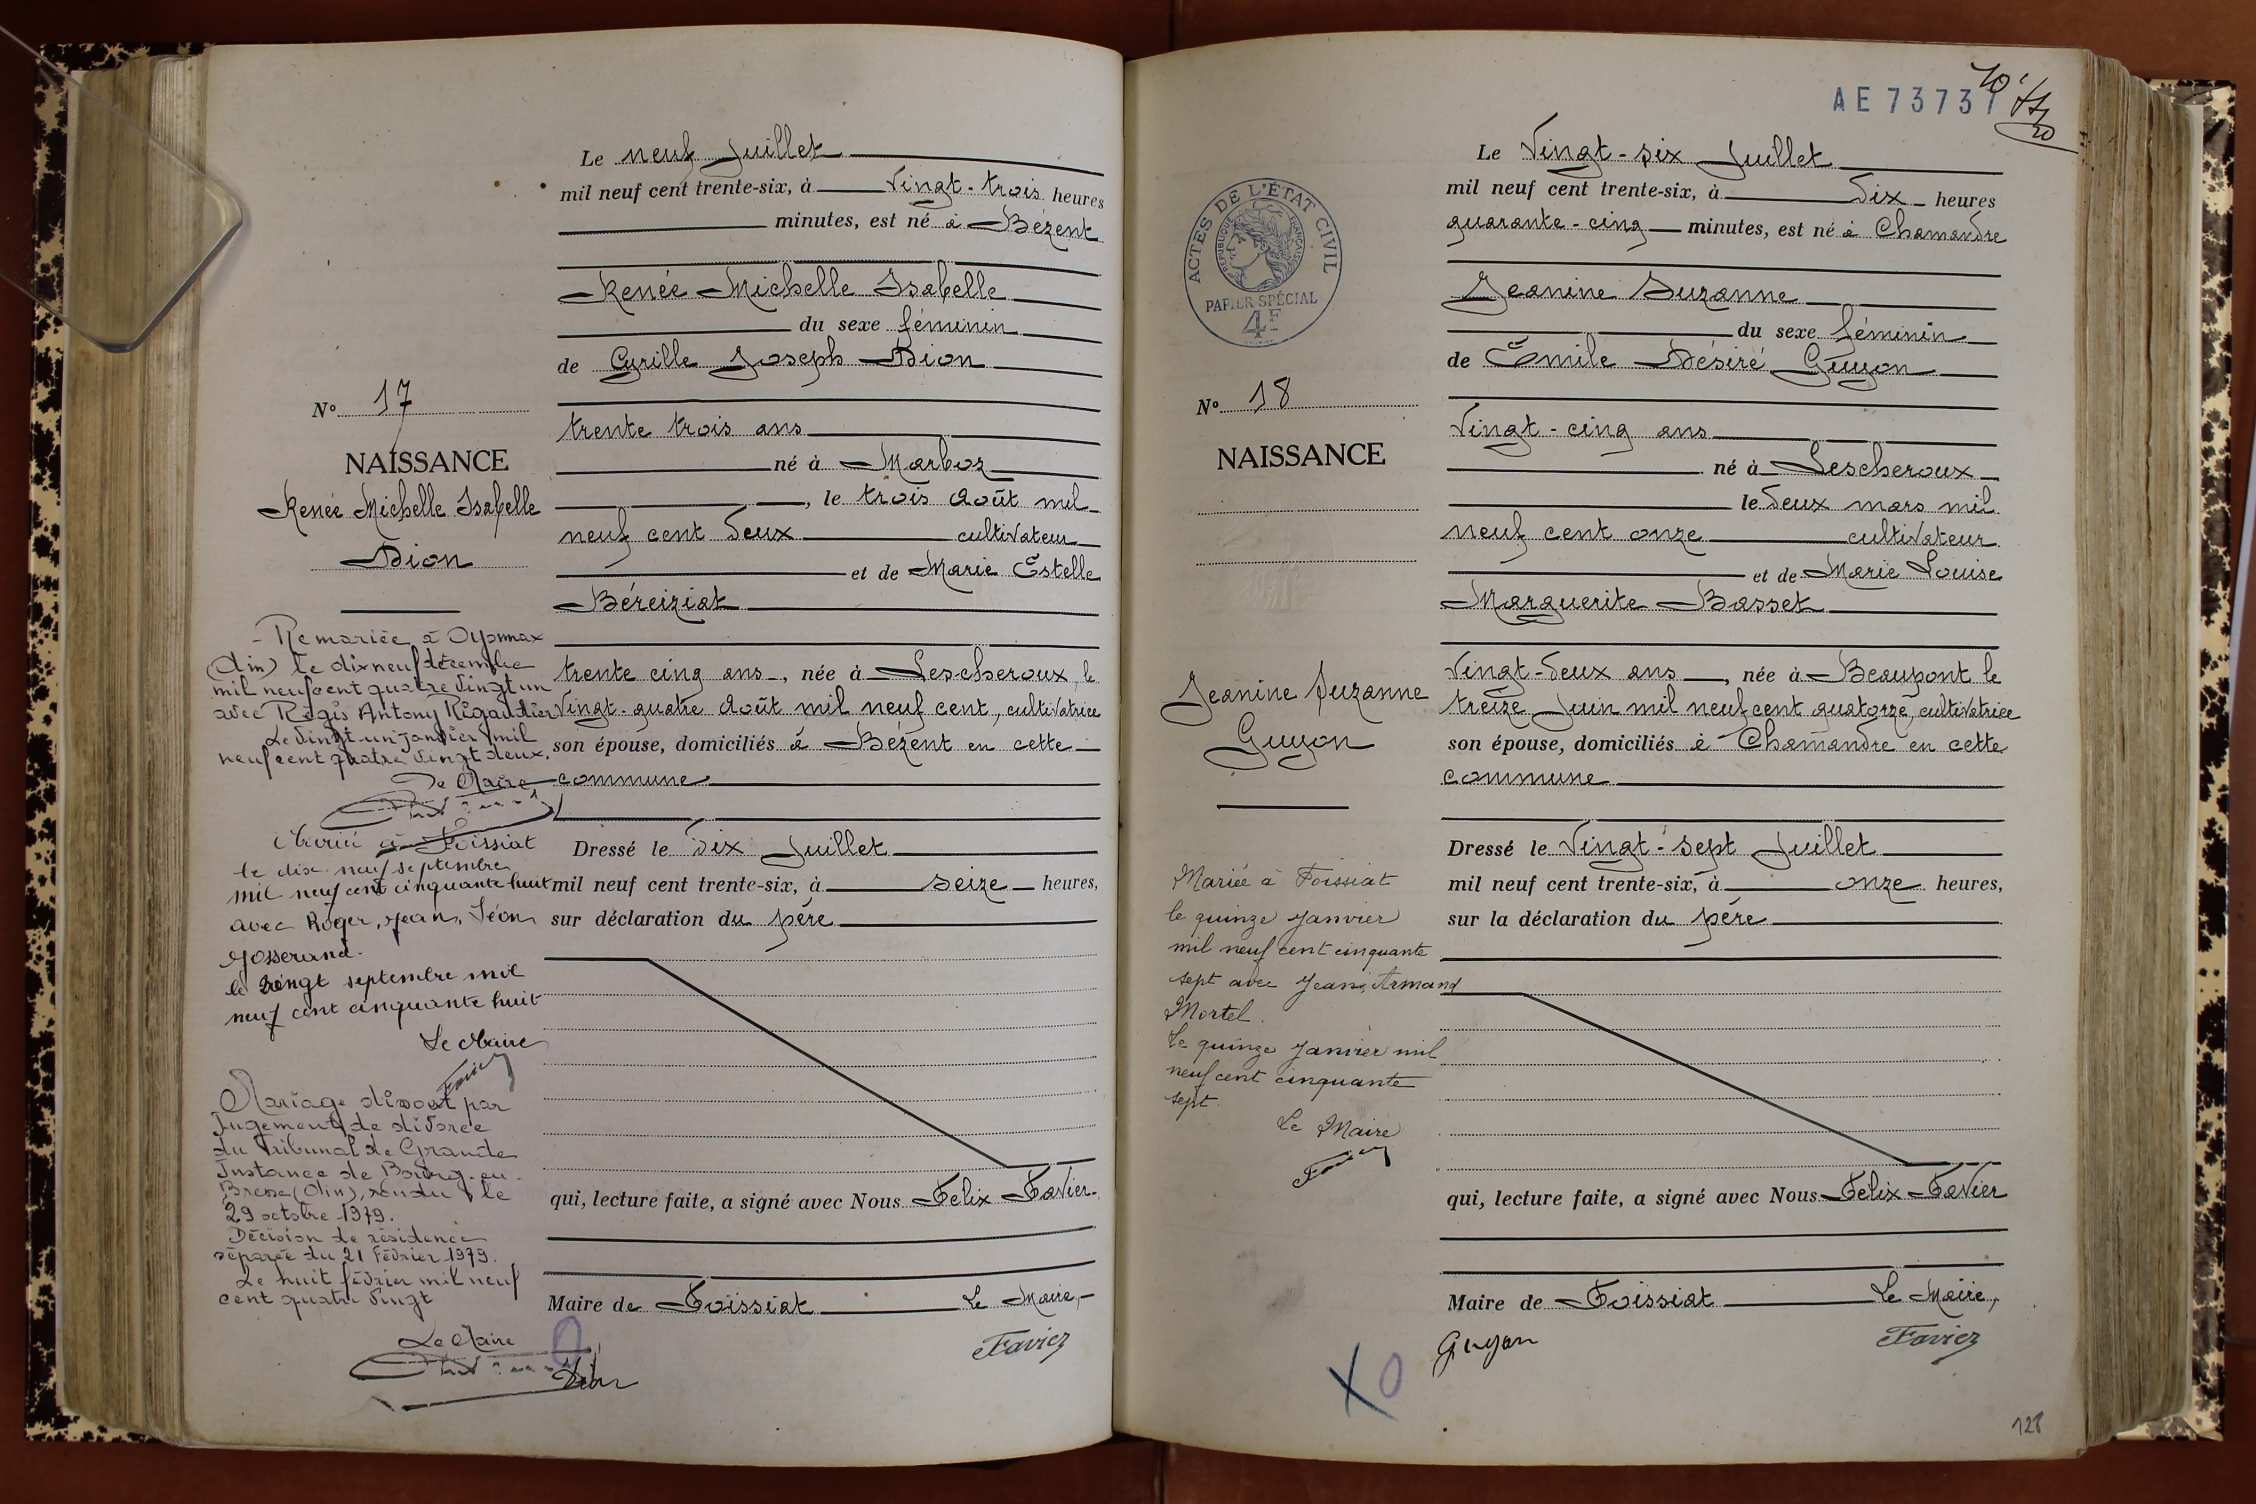 Le neuf Juillet
mil neuf cent trente-six, à Vingt-trois heures
minutes, est né à Bézent
Renée Michelle Isabelle
du sexe féminin
de Cyrille Joseph Dion
trente trois ans
né à Marboz
, le trois Août mil
neuf cent deux cultivateur
et de Marie Estelle
Béreiziat
trente cinq ans, née à Lescheroux, le
Vingt-quatre Août mil neuf cent, cultivatrice
son épouse, domiciliés à Bézent en cette
commune
Dressé le dix Juillet
mil neuf cent trente-six, à seize heures,
sur déclaration du père
qui, lecture faite, a signé avec Nous Felix Favier
Maire de Foissiat Le Maire,
Favier
Dion
N° 17
NAISSANCE
Renée Michelle Isabelle
Dion
- Remariée à Oyonnax
(Ain) le dix neuf décembre
mil neuf cent quatre vingt un
avec Régis Antony Rigaudier
Le vingt un janvier mil
neuf cent quatre vingt deux.
Le Maire
Marié à Foissiat
le dix neuf septembre
mil neuf cent cinquante huit
avec Roger, Jean, Léon
Josserand.
le vingt septembre mil
neuf cent cinquante huit
Le Maire
Favier
Mariage dissout par
Jugement de divorce
du Tribunal de Grande
Instance de Bourg-en-
Bresse (Ain), rendu le
29 octobre 1979.
Décision de résidence
séparée du 21 Février 1979.
Le huit février mil neuf
cent quatre vingt
Le Maire
AE 73737
ACTES DE L'ÉTAT CIVIL
RÉPUBLIQUE FRANÇAISE
PAPIER SPÉCIAL
4F
Le Vingt-six Juillet
mil neuf cent trente-six, à dix heures
quarante-cinq minutes, est né à Chamandre
Jeanine Suzanne
du sexe féminin
de Emile Désiré Guyon
Vingt-cinq ans
né à Lescheroux
le deux mars mil
neuf cent onze cultivateur
et de Marie Louise
Marguerite Basset
Vingt-deux ans, née à Beaupont le
treize Juin mil neuf cent quatorze, cultivatrice
son épouse, domiciliés à Chamandre en cette
commune
Dressé le Vingt-sept Juillet
mil neuf cent trente-six, à onze heures,
sur la déclaration du père
qui, lecture faite, a signé avec Nous Felix Favier
Maire de Foissiat Le Maire,
Guyon Favier
N° 18
NAISSANCE
Jeanine Suzanne
Guyon
Mariée à Foissiat
le quinze janvier
mil neuf cent cinquante
sept avec Jean, Armand
Mortel.
Le quinze janvier mil
neuf cent cinquante
sept.
Le Maire
Favier
128